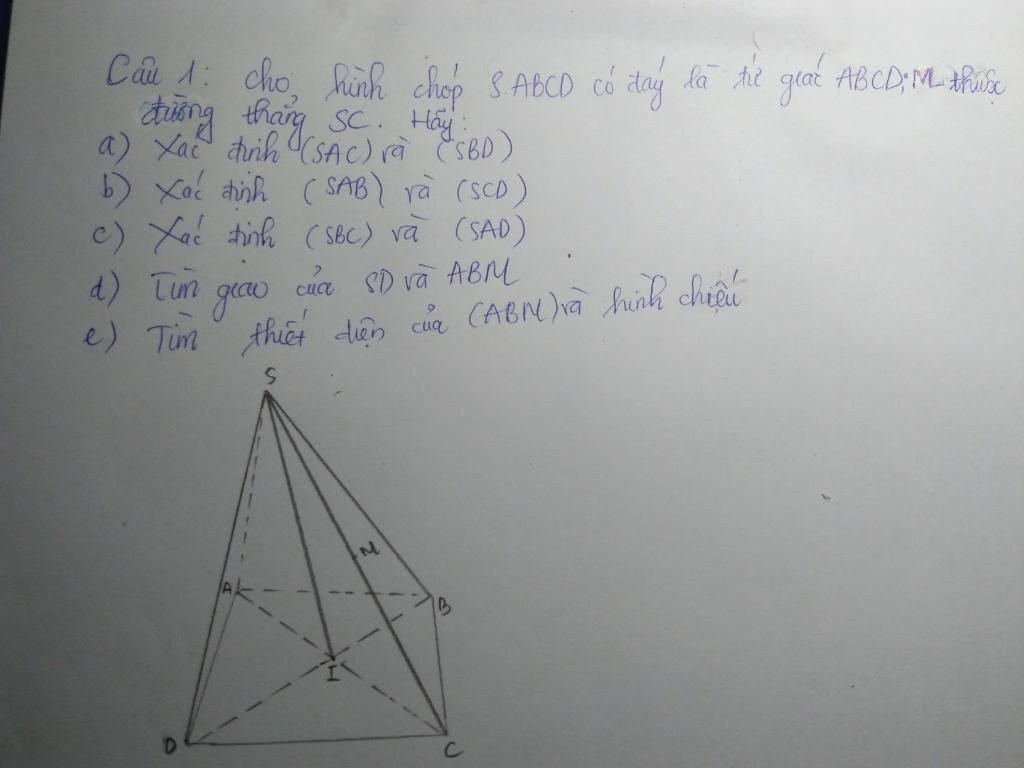 Câu 1: Cho hình chóp S.ABCD có đáy là tứ giác ABCD; M thuộc
đường thẳng SC. Hãy:
a) Xác định (SAC) và (SBD)
b) Xác định (SAB) và (SCD)
c) Xác định (SBC) và (SAD)
d) Tìm giao của SD và ABM
e) Tìm thiết diện của (ABM) và hình chiếu
S
M
A
B
I
D
C